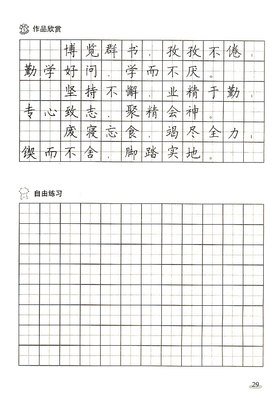 作品欣赏
博览群书，孜孜不倦，
勤学好问，学而不厌。
坚持不懈，业精于勤，
专心致志，聚精会神。
废寝忘食，竭尽全力，
锲而不舍，脚踏实地。
自由练习
29